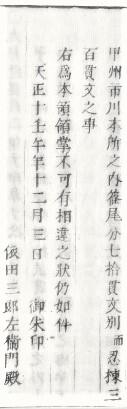 甲州市川本所之內篠尾分七拾貫文別而忍棟三
百貫文之事
右爲本領領掌不可有相違之狀仍如件
天正十壬午年十二月三日　御朱印
依田三郎左衞門殿